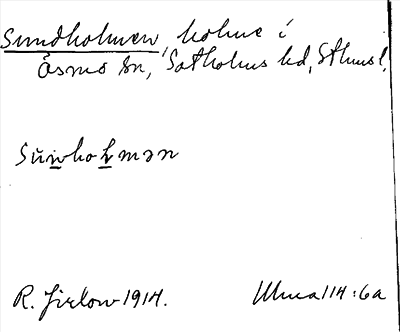 Sundholmen, holme i
Åsmo sn, Sotholms hd, Sthmsl.
Sŭnholmən
R. Jirlow 1914.
Uma 114:6a